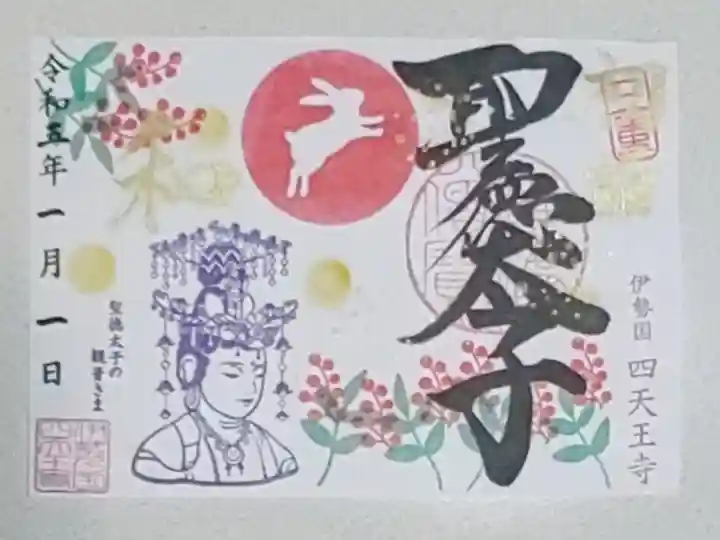 聖徳太子
伊勢国 四天王寺
聖徳太子の
観音さま
令和五年一月一日